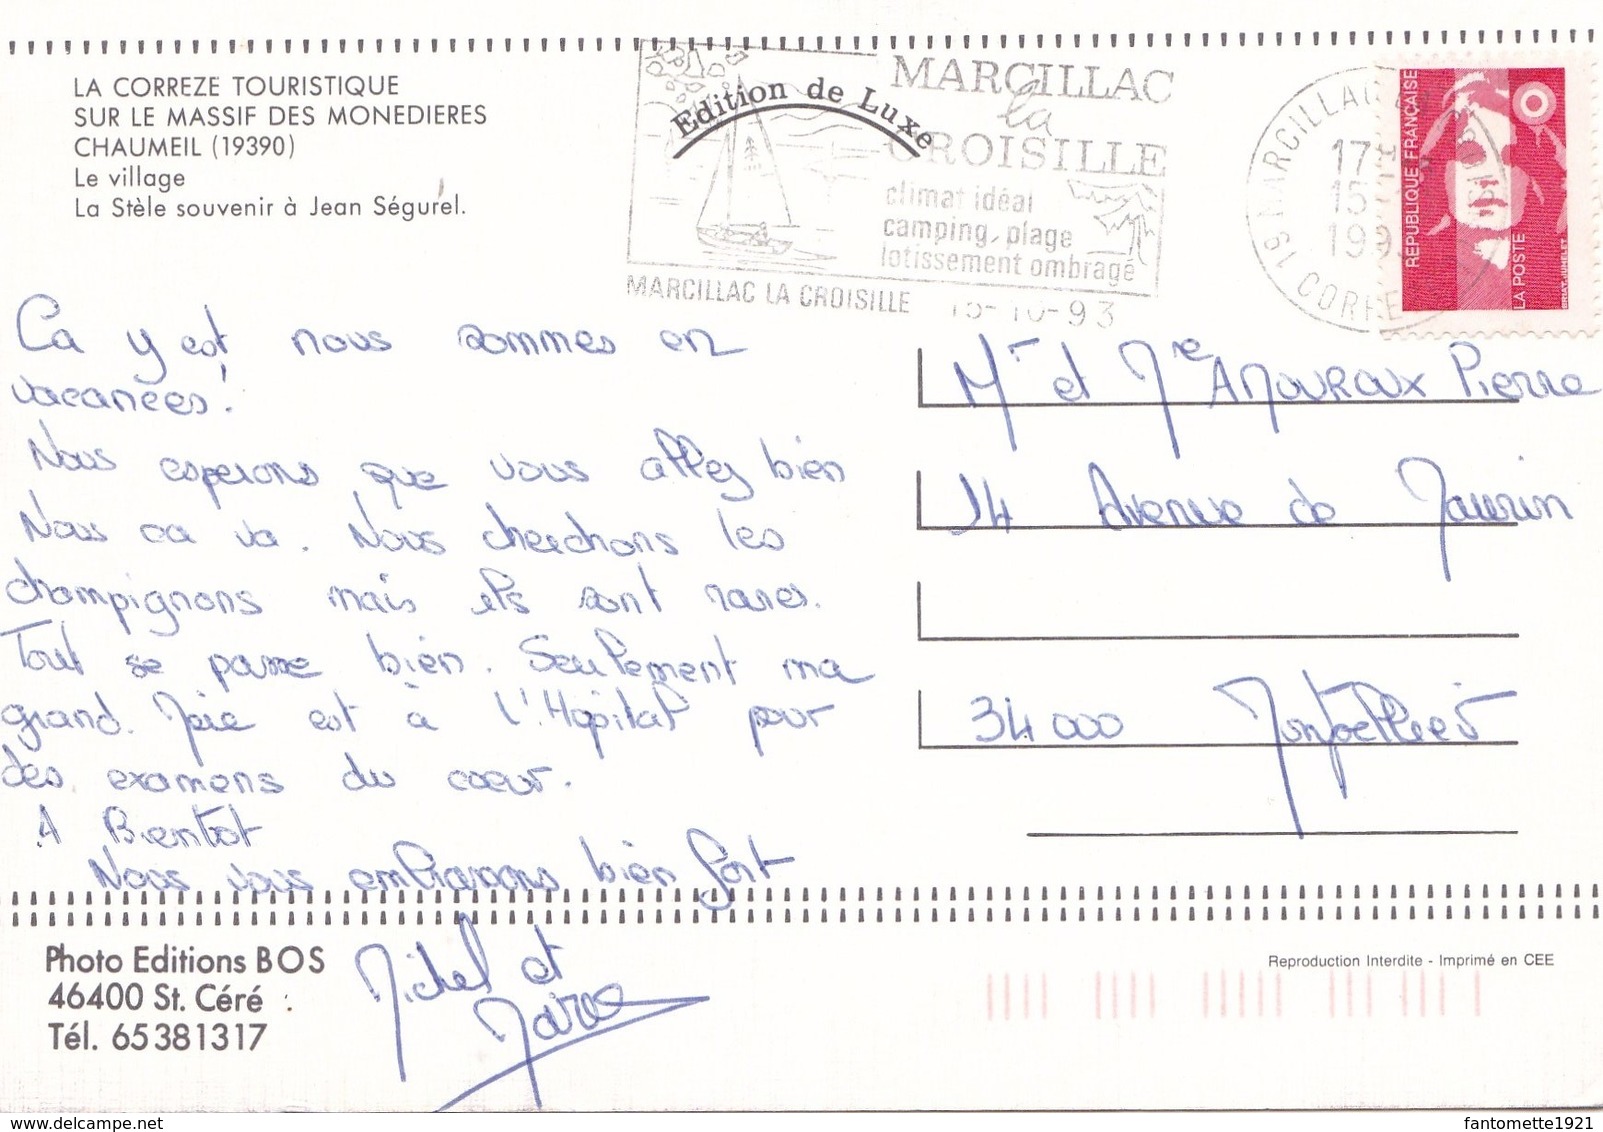 LA CORREZE TOURISTIQUE
SUR LE MASSIF DES MONEDIERES
CHAUMEIL (19390)
Le village
La Stèle souvenir à Jean Ségurel.
Edition de Luxe
MARCILLAC
la
CROISILLE
climat idéal
camping, plage
lotissement ombragé
MARCILLAC LA CROISILLE 15-10-93
REPUBLIQUE FRANÇAISE
LA POSTE
Ca y est nous sommes en
vacances!
Nous esperons que vous allez bien
Nous ca va. Nous cherchons les
champignons mais ils sont rares.
Tout se passe bien. Seulement ma
grand Mère est à l'Hôpital pour
des examens du coeur.
A Bientot
Nous vous embrassons bien fort
Michel et
Mr et Me AMOUROUX Pierre
14 Avenue de Maurin
34000 Montpellier
Photo Editions BOS
46400 St. Céré
Tél. 65381317
Reproduction Interdite - Imprimé en CEE
www.delcampe.net
fantomette1921